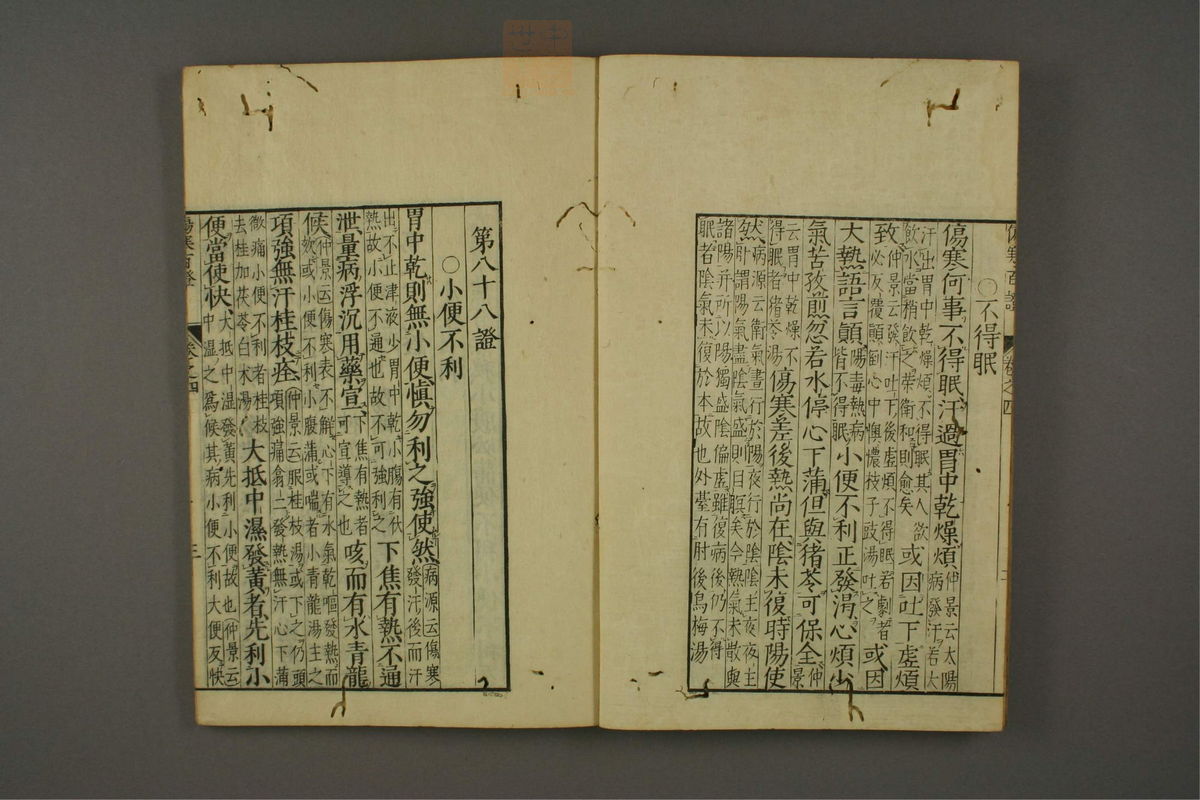 傷寒百證 卷之四
〇不得眠
傷寒何事不得眠汗過胃中乾燥煩仲景云太陽病發汗若大
汗出胃中乾燥煩不得眠其人欲飲水當稍飲之榮衛和則愈矣或因吐下虛煩
致仲景云發汗吐下後虛煩不得眠若劇者必反覆顛倒心中懊憹枝子豉湯吐之或因
大熱語言顛陽毒熱病皆不得眠小便不利正發渴心煩少
氣苦孜煎忽若水停心下滿但與猪苓可保全仲景
云胃中乾燥不得眠者猪苓湯傷寒差後熱尚在陰未復時陽使
然病源云衛氣晝行於陽夜行於陰陰主夜夜主臥謂陽氣盡陰氣盛則目瞑矣今熱氣未散與
諸陽并所以陽獨盛陰偏虛雖復病後仍不得眠者陰氣未復於本故也外臺有肘後烏梅湯
第八十八證
〇小便不利
胃中乾則無小便慎勿利之強使然病源云傷寒發汗後而汗
出不止津液少胃中乾小腸有伏熱故小便不通也故不可強利之下焦有熱不通
泄量病浮沉用藥宣下焦有熱者可宣導之也咳而有水青龍
候仲景云傷寒表不解心下有水氣乾嘔發熱而欬或小便不利小腹滿或喘者小青龍湯主之
項強無汗桂枝痊仲景云服桂枝湯或下之仍頭項強痛翕二發熱無汗心下滿
微痛小便不利者桂枝去桂加茯苓白朮湯大抵中濕發黃者先利小
便當使快大抵中湿發黃先利小便故也仲景云中湿之爲候其病小便不利大便反快
傷寒百證 卷之四 三